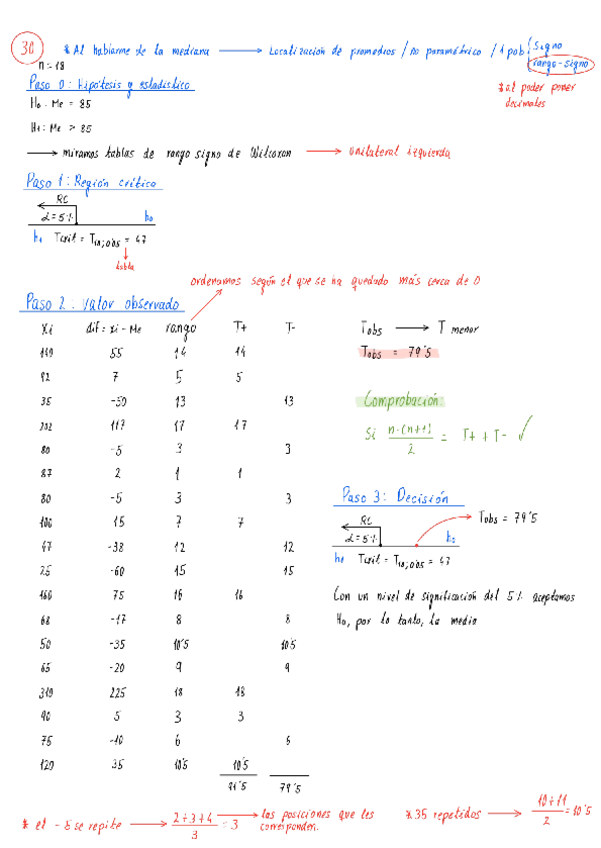 30 * Al hablarme de la mediana → Localización de promedios / no paramétrico / 1 pob { Signo
rango-signo
n = 18
Paso 0: Hipótesis y estadístico
* al poder poner
decimales
H0: Me = 85
H1: Me > 85
→ miramos tablas de rango signo de Wilcoxon → unilateral izquierda
Paso 1: Región crítica
RC
α = 5% h0
h1 Tcrit = T18;0'05 = 47
tabla
ordenamos según el que se ha quedado más cerca de 0
Paso 2: Valor observado
Xi dif = xi - Me rango T+ T-
55 14 14
92 7 5 5
35 -50 13 13
202 117 17 17
80 -5 3 3
87 2 1 1
80 -5 3 3
100 15 7 7
47 -38 12 12
25 -60 15 15
160 75 16 16
68 -17 8 8
50 -35 10'5 10'5
65 -20 9 9
310 225 18 18
90 5 3 3
75 -10 6 6
120 35 10'5 10'5
91'5 79'5
Tobs → T menor
Tobs = 79'5
Comprobación:
Si n·(n+1) / 2 = T+ + T- ✓
Paso 3: Decisión
RC Tobs = 79'5
α = 5% h0
h1 Tcrit = T18;0'05 = 47
Con un nivel de significación del 5% aceptamos
H0, por lo tanto, la media
* el -5 se repite → 2+3+4 / 3 = 3 → las posiciones que les
corresponden.
* 35 repetidos → 10+11 / 2 = 10'5